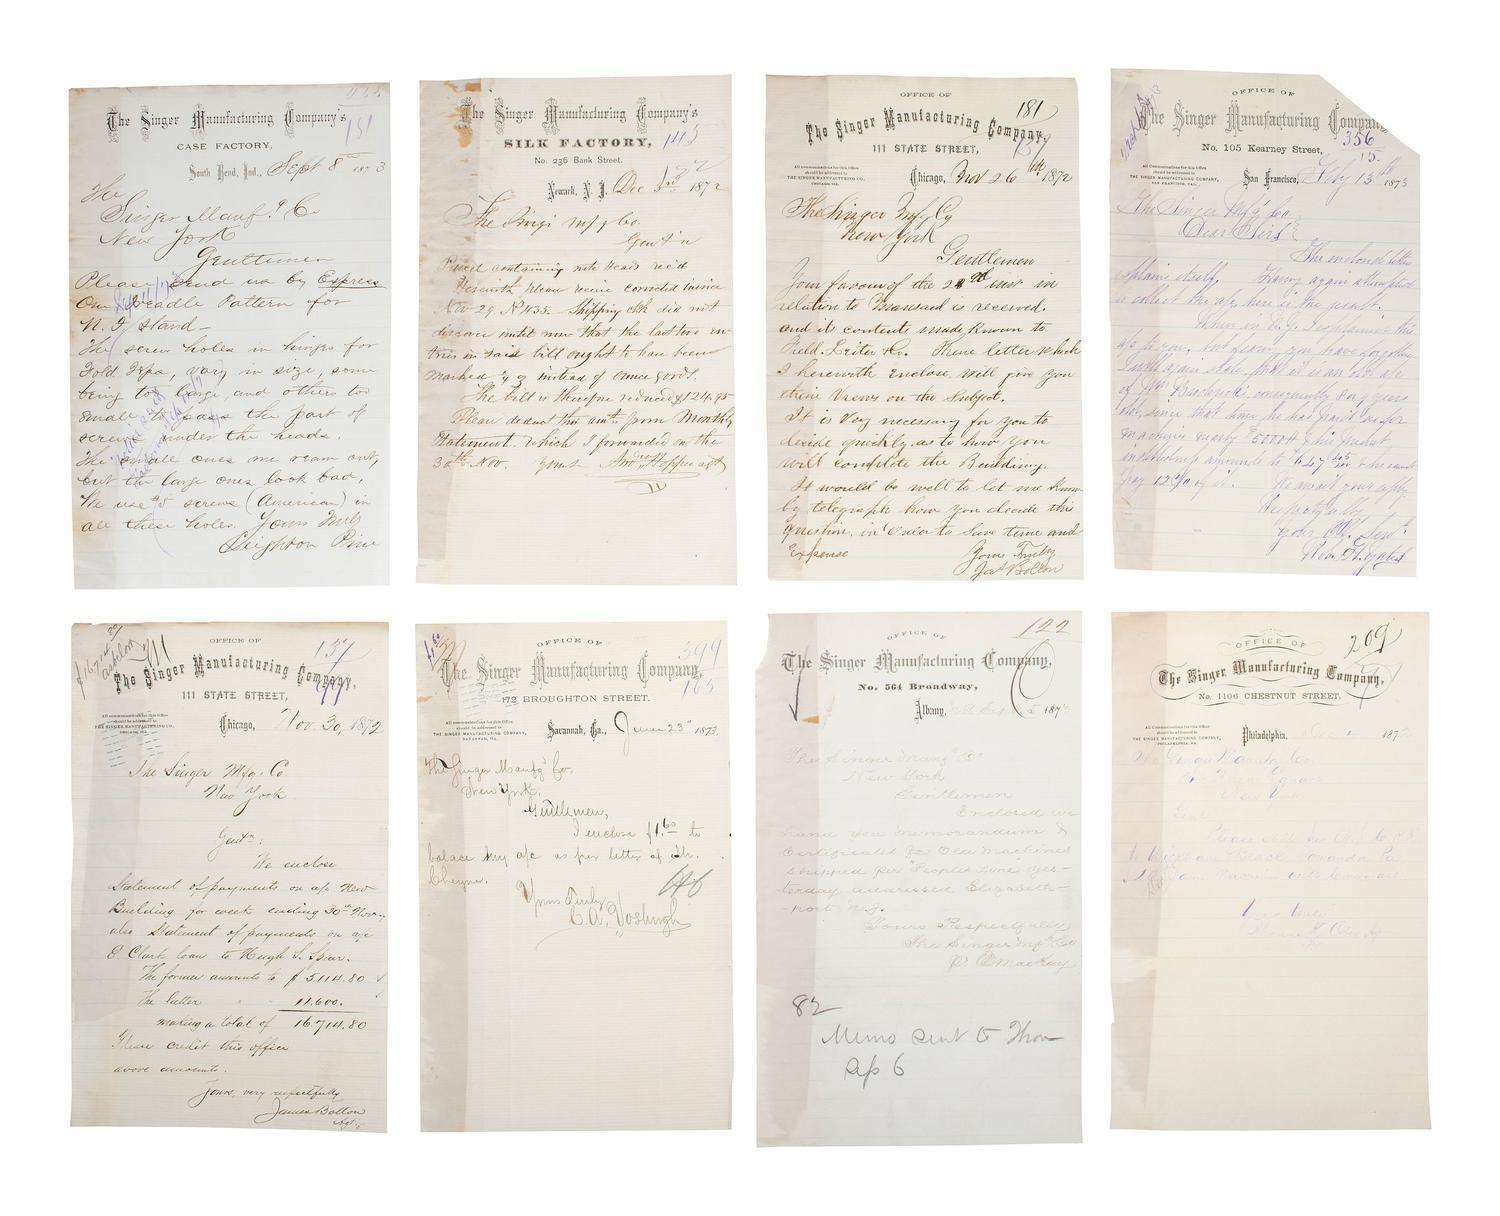 The Singer Manufacturing Company's
181
CASE FACTORY,
South Bend, Ind., Sept 8th 1873
The
Singer Manfg Co
New York
Gentlemen
Please send us by Express
One Treadle Pattern for
N. F Stand
The screw holes in hinges for
Fold Tops, vary in size, some
being too large, and others too
small to pass the part of
screws under the heads.
The small ones we ream out,
but the large ones look bad,
We use #5 screws (American) in
all these holes. Yours Truly
Leighton Pine
The Singer Manufacturing Company's
SILK FACTORY,
143
No. 236 Bank Street.
Newark, N. J. Dec 3rd 1872
The Singer Mfg Co.
Gentn
Parcel containing note Heads rec'd
Herewith please receive corrected invoice
Nov 29. No 1435. Shipping clk did not
discover until now that the last two en-
tries in said bill ought to have been
marked instead of ounce goods.
The bill is therefore reduced $124.95
Please deduct this amt. from Monthly
Statement. Which I forwarded on the
30th Nov. Yours Jno Hopper agt
OFFICE OF
181
The Singer Manufacturing Company,
111 STATE STREET,
All Communications for this Office
should be addressed to
THE SINGER MANUFACTURING CO.,
CHICAGO, ILL.
Chicago, Nov 26th 1872
The Singer Mfg Co
New York
Gentlemen
Your favour of the 22nd inst in
relation to Mansard is received.
and its contents made known to
Field Leiter & Co. There letter which
I herewith Enclose will give you
their Views on the Subject.
It is Very necessary for you to
decide quickly, as to how you
will complete the Building.
It would be well to let me know
by telegraph how you decide this
question, in order to Save time and
Expense Yours Truly
Jas Bolton
OFFICE OF
The Singer Manufacturing Company
356
No. 105 Kearney Street,
15.
All Communications for this Office
should be addressed to
THE SINGER MANUFACTURING COMPANY,
SAN FRANCISCO, CAL.
San Francisco, Feby 13th 1873
The Singer Mfg Co.
Dear Sirs
The enclosed letter
explains itself. Having again attempted
to collect the a/c here is the result.
When in N.Y. I explained this
a/c to you, but fearing you have forgotten
I will again state, that is is an old a/c
of consequently 8 or 9 years
old, since that time he has paid us for
machines nearly $5000 & his present
indebtedness amounts to $647 45/100 & he cannot
pay
We await your reply
Respectfully
Your Obt Servt
OFFICE OF
137
The Singer Manufacturing Company,
111 STATE STREET,
99
All communications for this Office
should be addressed to
THE SINGER MANUFACTURING CO.,
CHICAGO, ILL.
Chicago, Nov. 30, 1872
The Singer Mfg. Co.
New York
Gentn:
We enclose
Statement of payments on a/c New
Building for week ending 30th Nov.,
also Statement of payments on a/c
E Clark loan to Hugh S. Spear.
The former amounts to $5,114.80
The latter " " 11,600.
making a total of 16,714.80
Please credit this office
above amounts.
Yours, very respectfully
James Bolton
Agt.
OFFICE OF
399
The Singer Manufacturing Company,
165
172 BROUGHTON STREET.
All communications for this Office
should be addressed to
THE SINGER MANUFACTURING COMPANY,
SAVANNAH, GA.
Savannah, Ga., June 23d 1873.
The Singer Manfg Co.
New York.
Gentlemen,
I enclose $1.60 to
balance my a/c as per letter of Mr.
Cheyne.
Yours Truly
OFFICE OF
122
The Singer Manufacturing Company,
No. 564 Broadway,
Albany, 187
The Singer Manfg Co
New York
Gentlemen
Enclosed we
hand you Memorandum &
Certificates for Old Machines
shipped per "Peoples Line yes-
terday addressed Elizabeth-
-port N.J.
Yours Respectfully
The Singer Mfg Co
Pr E Mackay
82
Memo sent to Thom
Sep 6
OFFICE OF
209
The Singer Manufacturing Company,
No. 1106 CHESTNUT STREET,
All Communications for this Office
should be addressed to
THE SINGER MANUFACTURING COMPANY,
PHILADELPHIA, PA.
Philadelphia, 187
The Singer Manufg Co.